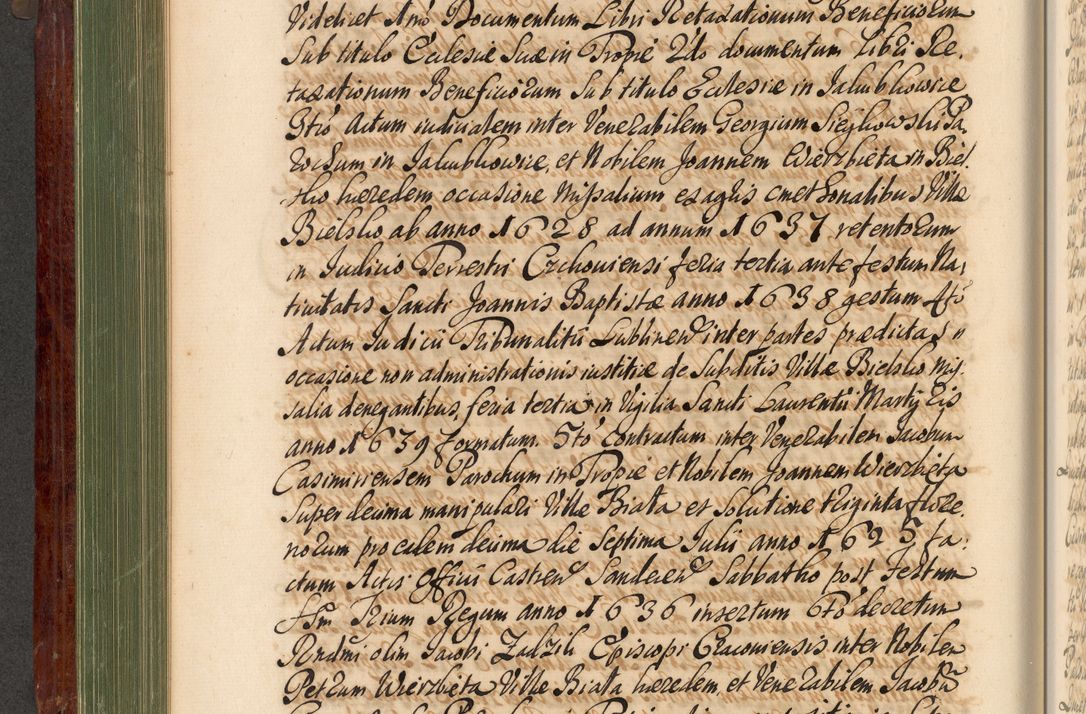 Videlicet Imo Documentum Libri Retaxationum Beneficiorum
Sub titulo Ecclesiæ Suæ in Tropie 2do documentum libri Re,
taxationum Beneficiorum Sub titulo Ecclesiæ in Jakubkowice
3tio Actum iudicialem inter Venerabilem Georgium Pa,
rochum in Jakubkowice, et Nobilem Joannem Wierzbieta in Biel
sko hæredem occasione Missalium ex agris cmethonalibus Villæ
Bielsko ab anno 1628 ad annum 1637 retentorum
in Judicio Terrestri Czchoviensi feria tertia ante festum Na,
tivitatis Sancti Joannis Baptistæ anno 1638 gestum 4to
Actum Judicii Tribunalitii Lublinen inter partes prædictas
occasione non administrationis iustitiæ de Subditis Villæ Bielsko Mis,
salia denegantibus, feria tertia in Vigilia Sancti Laurentii Martyris
anno 1639 formatum. 5to Contractum inter Venerabilem Jacobum
Casimiriensem Parochum in Tropie et Nobilem Joannem Wierzbieta
Super decima manipulari Villæ Biała et Solutione triginta flore,
norum pro eadem decima die Septima Julii anno 1625 fa,
ctum Actis Officii Castren Sandecen Sabbatho post Festum
SSm Trium Regum anno 1636 insertum 6to decretum
Rndmi olim Jacobi Zadzik Episcopi Cracoviensis inter Nobilem
Petrum Wierzbieta Villæ Biała hæredem et Venerabilem Jacobũ